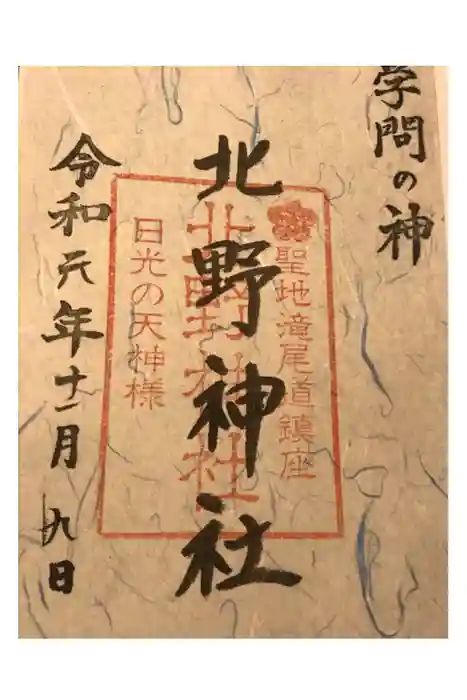 学問の神
聖地滝尾道鎮座
北野神社
北野神社
日光の天神様
令和元年十一月九日